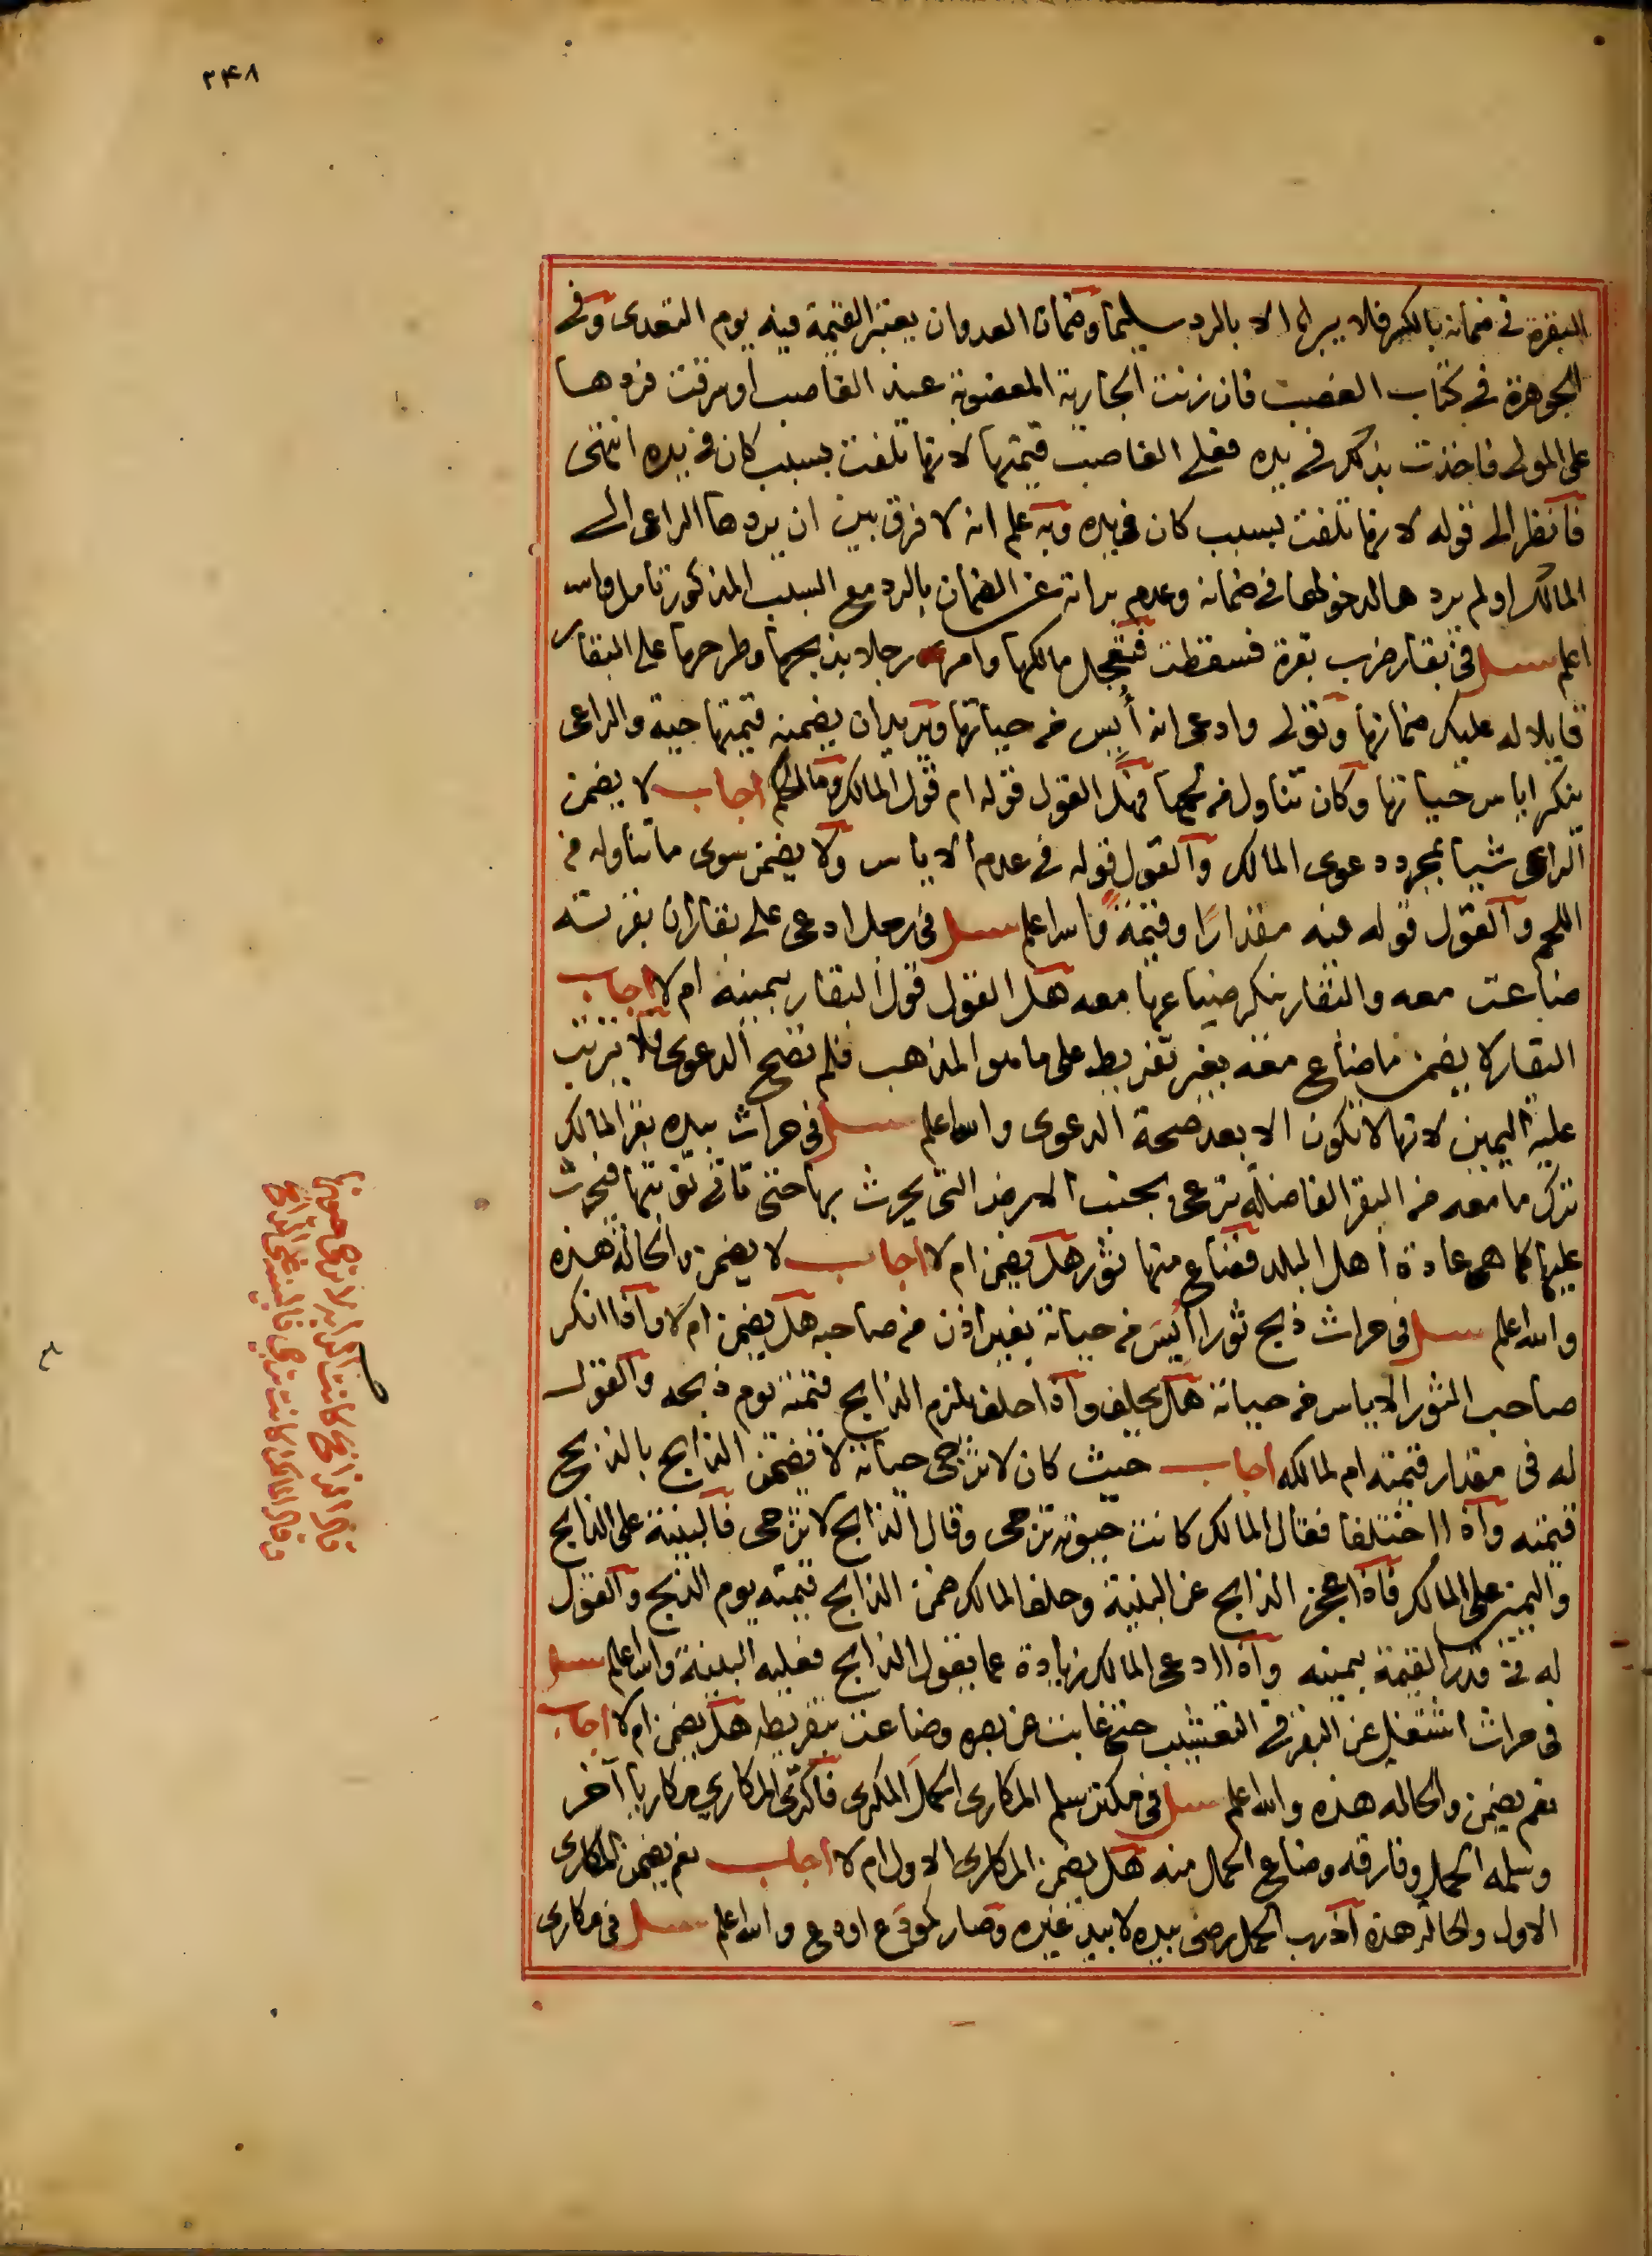 ٢٤٨
البقرة في ضمانه بالكسر فلا يبرأ الا بالرد سليما وضمان العدوان يعتبر القيمة فيه يوم التعدى وفى
الجوهرة في كتاب الغصب فان زنت الجارية المغصوبة عند الغاصب او سرقت فردها
على المولى فاخذت بذلك في يده فعلى الغاصب قيمتها لانها تلفت بسبب كان في يده انتهى
فانظر الى قوله لانها تلفت بسبب كان في يده وبه علم انه لا فرق بين ان يردها الراعى الى
المالك او لم يردها لدخولها في ضمانه وعدم براته عن الضمان بالرد مع السبب المذكور تامل والله
اعلم سئل في بقار ضرب بقرة فسقطت فتعجل مالكها وامر رجلا بذبحها وطرحها على البقار
قايلا له عليك ضمانها وتولى وادعى انه أيس من حياتها ويريد ان يضمنه قيمتها حية والراعى
ينكر اياس حياتها وكان تناول من لحمها فهل القول قوله ام قول المالك وما الحكم اجاب لا يضمن
الراعى شيا بمجرد دعوى المالك والقول قوله في عدم الاياس ولا يضمن سوى ما تناوله من
اللحم والقول قوله فيه مقدارا وقيمة والله اعلم سئل في رجل ادعى على بقار ان بقرته
ضاعت معه والبقار ينكر ضياعها معه هل القول قول البقار بيمينه ام لا اجاب
البقار لا يضمن ما ضاع معه بغير تفريط على ما هو المذهب فلم تصح الدعوى فلا يترتب
عليه اليمين لانها لا تكون الا بعد صحة الدعوى والله اعلم سئل في حراث بيده بقر المالك
ترك ما معه من البقر الفاضلة ترعى بجنب الارض التى يحرث بها حتى تاتى نوبتها فيحرث
عليها كما هى عادة اهل البلد فضاع منها ثور هل يضمن ام لا اجاب لا يضمن والحالة هذه
والله اعلم سئل في حراث ذبح ثورا أيس من حياته بغير اذن من صاحبه هل يضمن ام لا واذا انكر
صاحب الثور الاياس من حياته هل يحلف واذا حلف يلزم الذابح قيمته يوم ذبحه والقول
له في مقدار قيمته ام لمالكه اجاب حيث كان لا ترجى حياته لا يضمن الذابح بالذبح
قيمته واذا اختلفا فقال المالك كانت حيوته ترجى وقال الذابح لا ترجى فالبينة على الذابح
واليمين على المالك فاذا عجز الذابح عن البينة وحلف المالك ضمن الذابح قيمته يوم الذبح والقول
له في قدر القيمة بيمينه واذا ادعى المالك زيادة عما يقول الذابح فعليه البينة والله اعلم سئل
في حراث اشتغل عن البقر في التعشيب حتى غابت عن بصره وضاعت بتفريطه هل يضمن ام لا اجاب
نعم يضمن والحالة هذه والله اعلم سئل في مكتر سلم المكارى الحمل المكرى فاكترى المكارى مكاريا آخر
وسلمه الحمل وفارقه وضاع الحمل منه هل يضمن المكارى الاول ام لا اجاب نعم يضمن المكارى
الاول والحالة هذه اذ رب الحمل رضى بيده لا بيد غيره وصار كمودع اودع والله اعلم سئل في مكارى